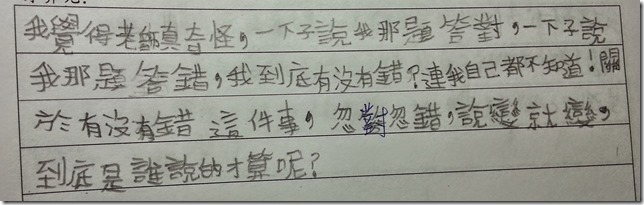 我覺得老師真奇怪，一下子說我那題答對，一下子說
我那題答錯，我到底有沒有錯？連我自己都不知道！關
於有沒有錯這件事，忽對忽錯，說變就變，
到底是誰說的才算呢？